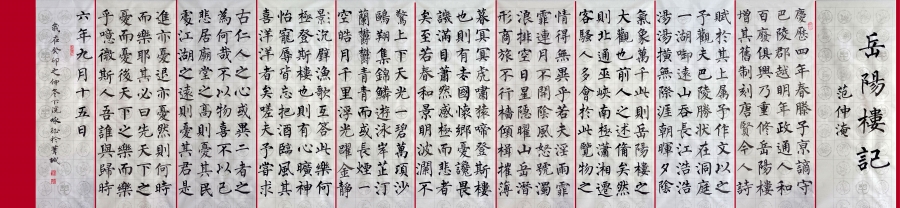 岳陽樓記
范仲淹
慶歷四年春滕子京謫守
巴陵郡越明年政通人和
百廢俱興乃重修岳陽樓
增其舊制刻唐賢今人詩
賦於其上屬予作文以之
予觀夫巴陵勝狀在洞庭
一湖啣遠山吞長江浩浩
湯湯橫無際涯朝暉夕陰
氣象萬千此則岳陽樓之
大觀也前人之述備矣然
則北通巫峽南極瀟湘遷
客騷人多會於此覽物之
情得無異乎若夫淫雨霏
霏連月不開陰風怒號濁
浪排空日星隱曜山岳潛
形商旅不行檣傾楫摧薄
暮冥冥虎嘯猿啼登斯樓
也則有去國懷鄉憂讒畏
譏滿目蕭然感極而悲者
矣至若春和景明波瀾不
驚上下天光一碧萬頃沙
鷗翔集錦鱗游泳岸芷汀
蘭鬱鬱青青而或長煙一
空皓月千里浮光躍金靜
影沉壁漁歌互答此樂何
極登斯樓也則有心曠神
怡寵辱皆忘把酒臨風其
喜洋洋者矣嗟夫予嘗求
古仁人之心或異二者之
為何哉不以物喜不以己
悲居廟堂之高則憂其民
處江湖之遠則憂其君是
進亦憂退亦憂然則何時
而樂耶其必曰先天下之
憂而憂後天下之樂而樂
乎噫微斯人吾誰與歸時
六年九月十五日
歲在癸卯之仲冬